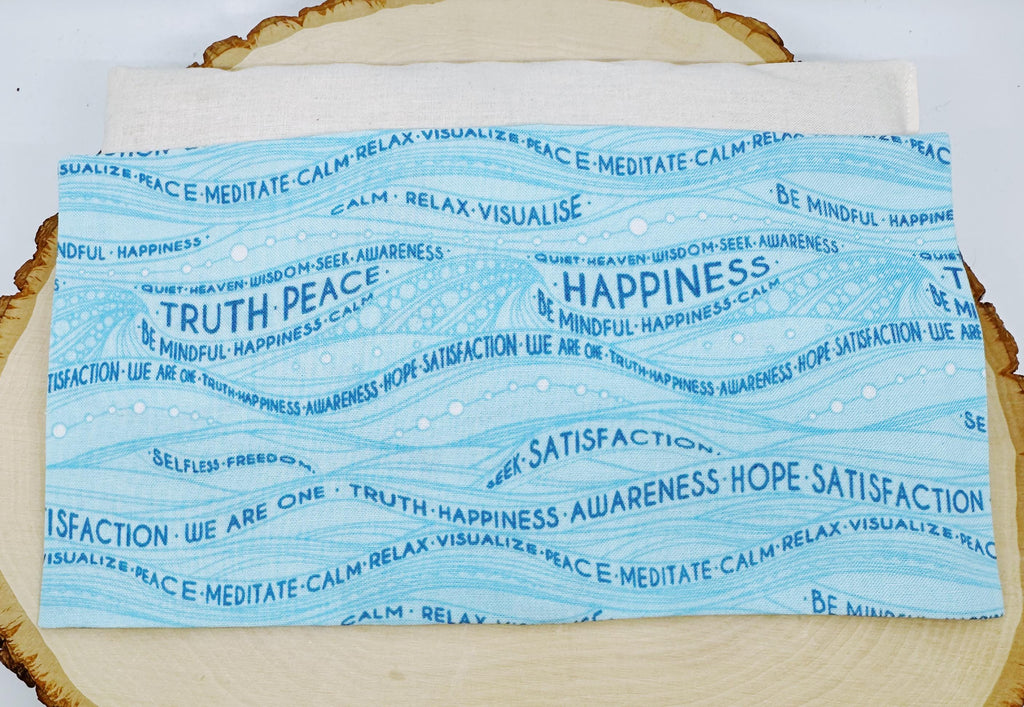 RELAX · VISUALIZE · PEACE · MEDITATE · CALM · RELAX
SUALIZE · PEACE · MEDITATE · CALM ·
PEAC
CALM · RELAX · VISUALISE ·
· BE MINDFUL · HAPPINE
NDFUL · HAPPINESS ·
· QUIET · HEAVEN · WISDOM · SEEK · AWARENESS ·
· QUIET · HEAVEN · WISDOM · SEEK · AWARENESS ·
· QUIE
TRUTH · PEACE ·
HAPPINESS ·
T
· BE MINDFUL · HAPPINESS · CALM
· BE MINDFUL · HAPPINESS · CALM
· BE MI
TISFACTION · WE ARE ONE · TRUTH · HAPPINESS · AWARENESS · HOPE · SATISFACTION · WE ARE ONE · TRUTH · HAPPINESS · AWARENESS · HOPE · SATISFACTION · WE ARE
· SE
· SELFLESS · FREEDOM ·
SEEK · SATISFACTION ·
ISFACTION · WE ARE ONE · TRUTH · HAPPINESS · AWARENESS · HOPE · SATISFACTION
VISUALIZE · PEACE · MEDITATE · CALM · RELAX · VISUALIZE · PEACE · MEDITATE · CALM · RELAX · VISUALIZE · PEAC
CALM · RELAX
· BE